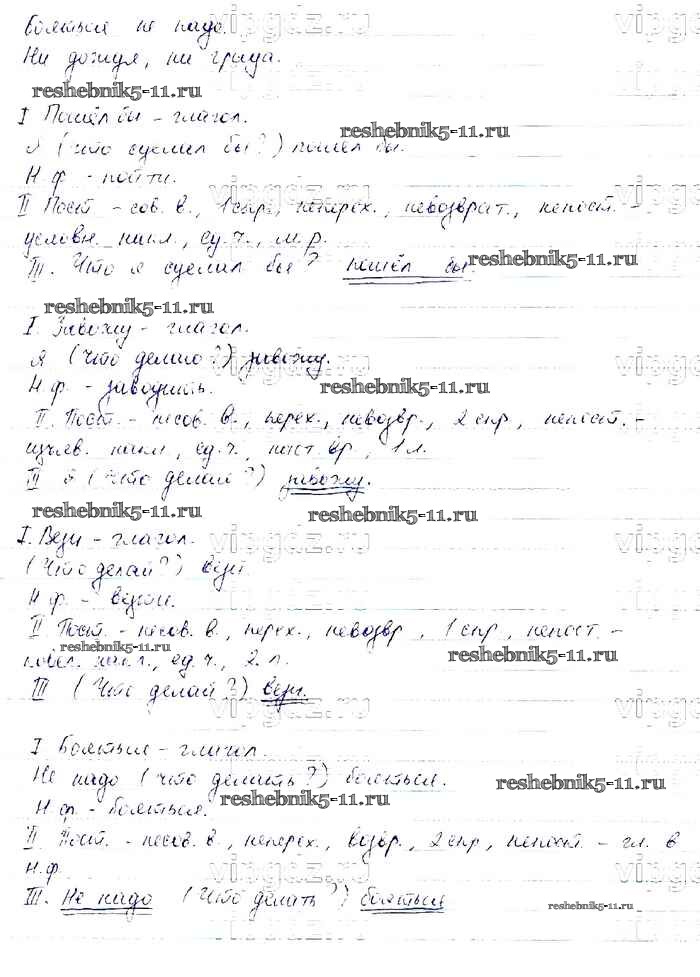 vipgdz.ru
Бояться не надо.
Ни дождя, ни града.
reshebnik5-11.ru
I Пошёл бы – глагол.
reshebnik5-11.ru
Я (что сделал бы?) пошёл бы.
Н.ф. - пойти.
vipgdz.ru
II Пост - сов. в., 1 спр., неперех., невозврат., непост. -
условн. накл., ед.ч., м.р.
III. Что я сделал бы? пошёл бы.
reshebnik5-11.ru
reshebnik5-11.ru
vipgdz.ru
I. Завожу – глагол.
Я (что делаю?) завожу.
Н.ф. - заводить.
reshebnik5-11.ru
II. Пост. - несов. в., перех., невозвр., 2 спр, непост. -
изъяв. накл., ед.ч., наст. вр, 1 л.
III Я (что делаю?) завожу.
reshebnik5-11.ru
reshebnik5-11.ru
I. Вези – глагол.
vipgdz.ru
vipgdz.ru
(Что делай?) вези
Н.ф. - везти.
II Пост. - несов. в., перех., невозвр, 1 спр, непост. -
повел. накл., ед.ч., 2 л.
reshebnik5-11.ru
reshebnik5-11.ru
III (Что делай?) вези.
vipgdz.ru
vipgdz.ru
I Бояться – глагол.
Не надо (что делать?) бояться.
reshebnik5-11.ru
Н.ф. - бояться.
reshebnik5-11.ru
II Пост. - несов. в., неперех., возвр., 2 спр, непост. - гл. в
н.ф.
vipgdz.ru
vipgdz.ru
III. Не надо (что делать?) бояться
reshebnik5-11.ru